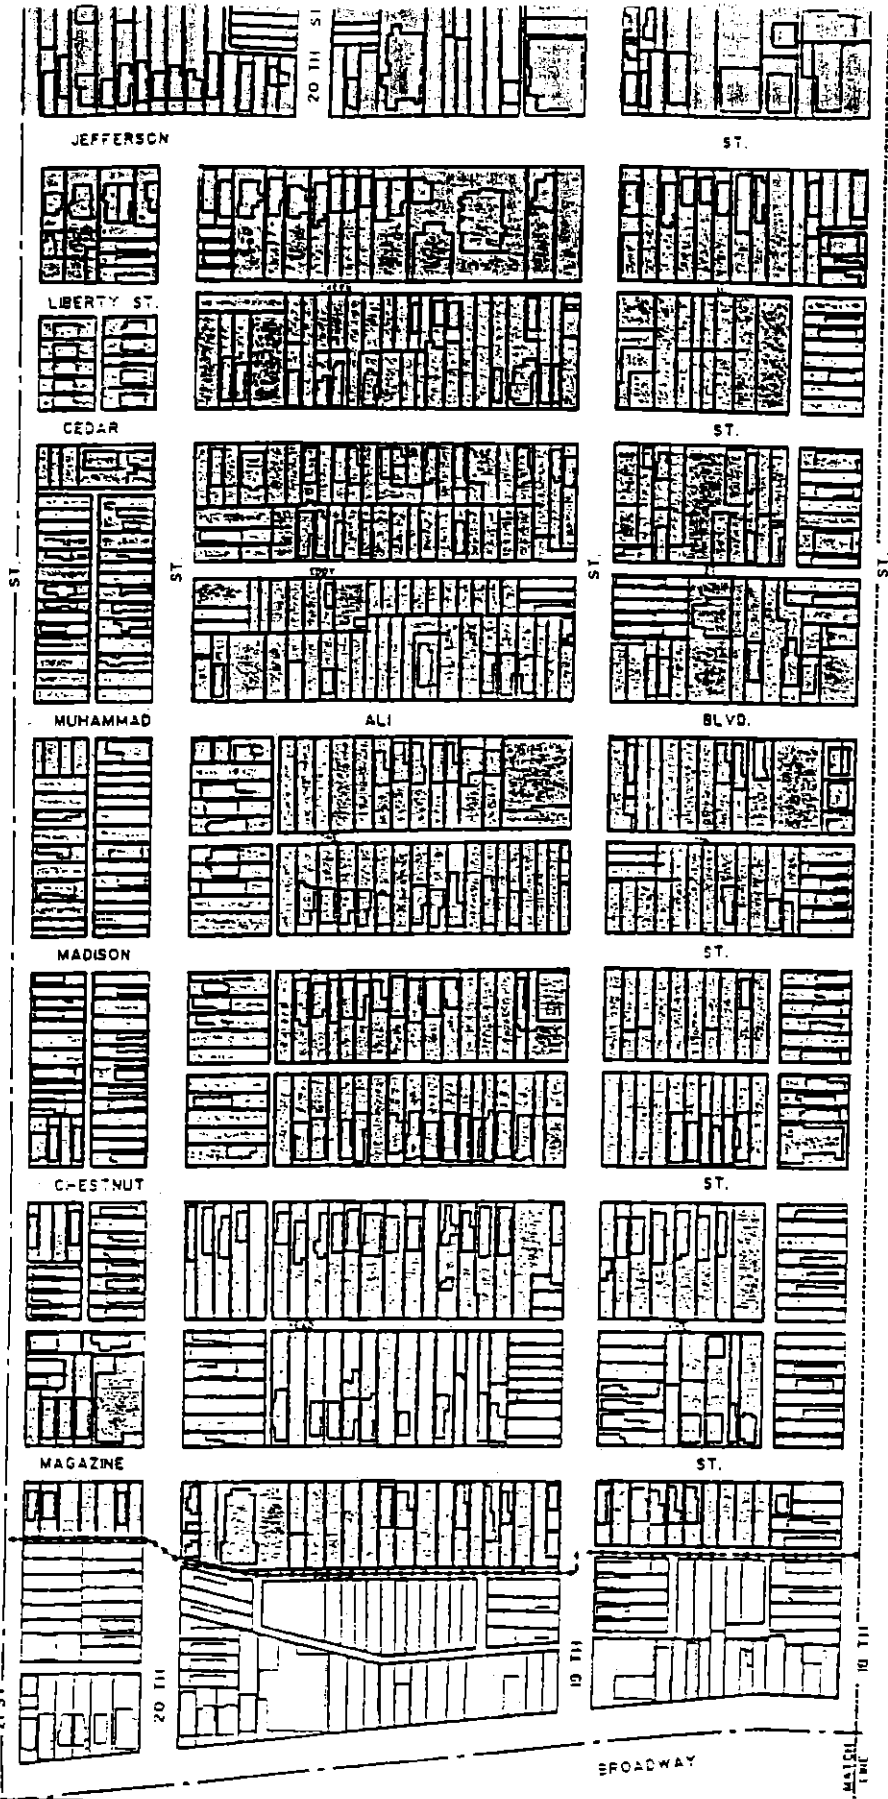 20 TH ST
JEFFERSON ST.
LIBERTY ST.
CEDAR ST.
ST. ST. ST. ST.
MUHAMMAD ALI BLVD.
MADISON ST.
CHESTNUT ST.
MAGAZINE ST.
20 TH
19 TH
BROADWAY
MATCH LINE